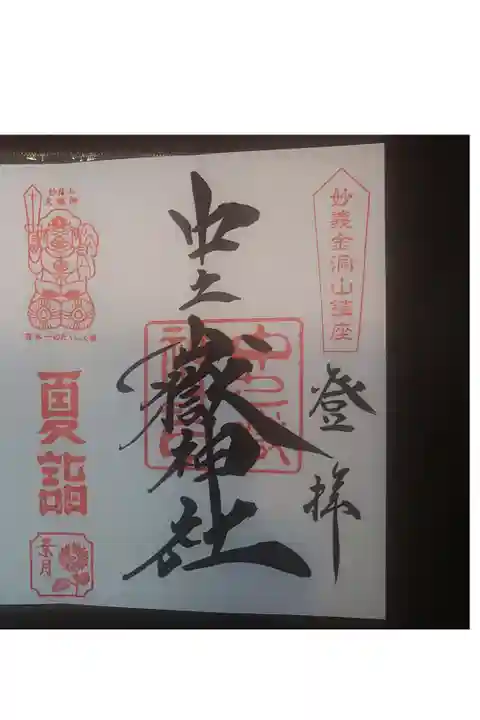 妙義金洞山鎮座
登拝
中之嶽神社
夏詣
葉月